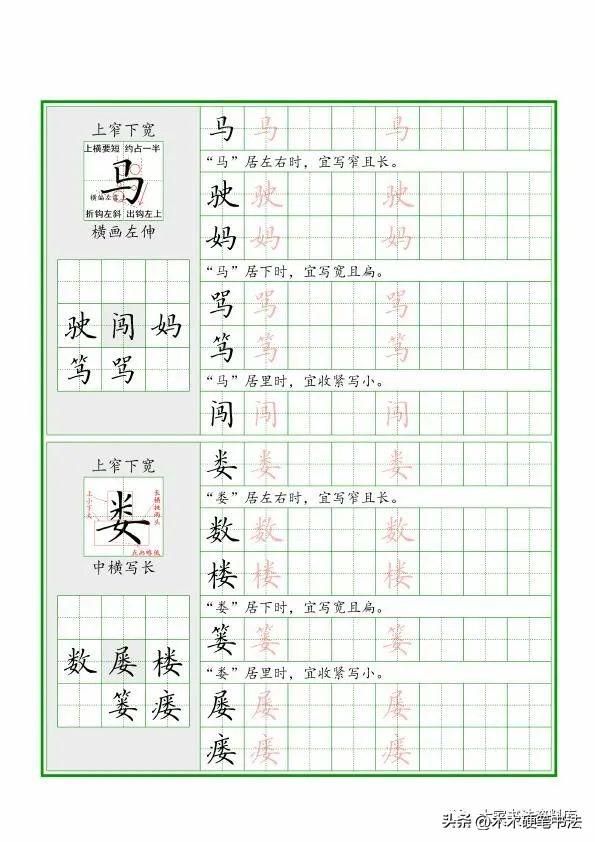 上窄下宽
上横要短 约占一半
马
横偏左靠上
折钩左斜 出钩左上
横画左伸
驶 闯 妈
笃 骂
马 马 马
“马”居左右时，宜写窄且长。
驶 驶 驶
妈 妈 妈
“马”居下时，宜写宽且扁。
骂 骂 骂
笃 笃 笃
“马”居里时，宜收紧写小。
闯 闯 闯
上窄下宽
上小下大
娄
长横挑两头
中横写长
数 屡 楼
篓 瘘
娄 娄 娄
“娄”居左右时，宜写窄且长。
数 数 数
楼 楼 楼
“娄”居下时，宜写宽且扁。
篓 篓 篓
“娄”居里时，宜收紧写小。
屡 屡 屡
瘘 瘘 瘘
头条 @木木硬笔书法